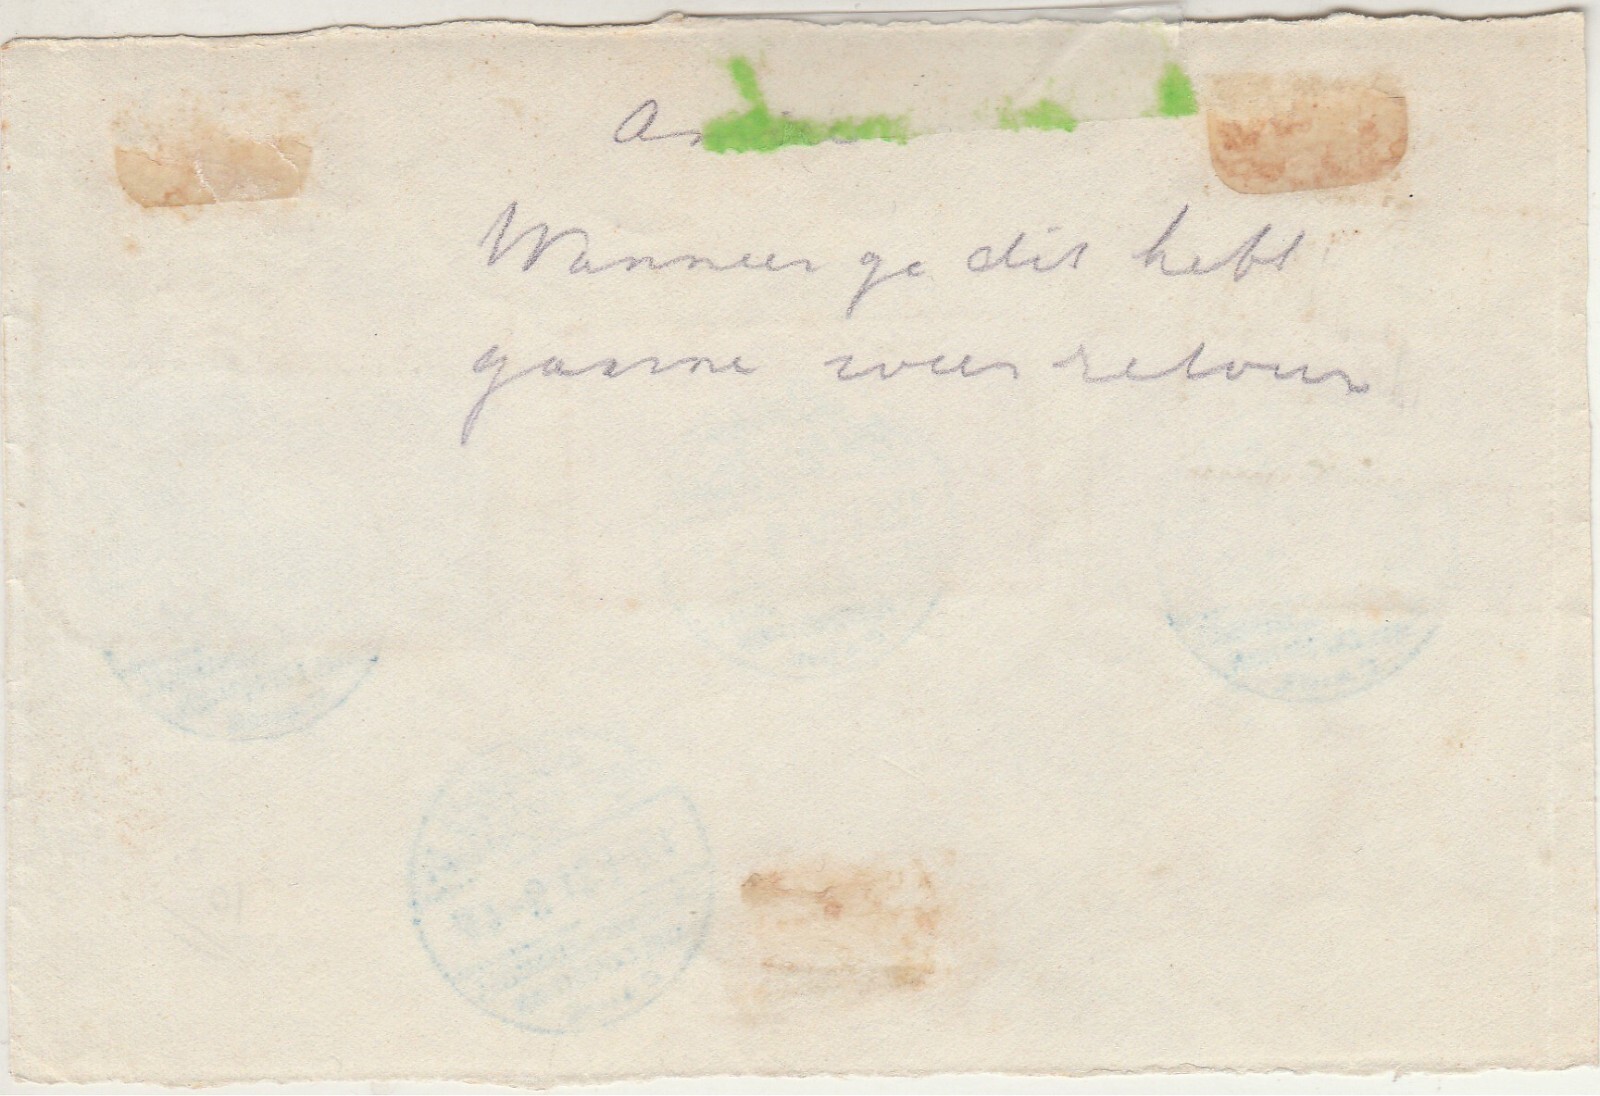 Wanneer ge dit hebt
gaarne weer retour